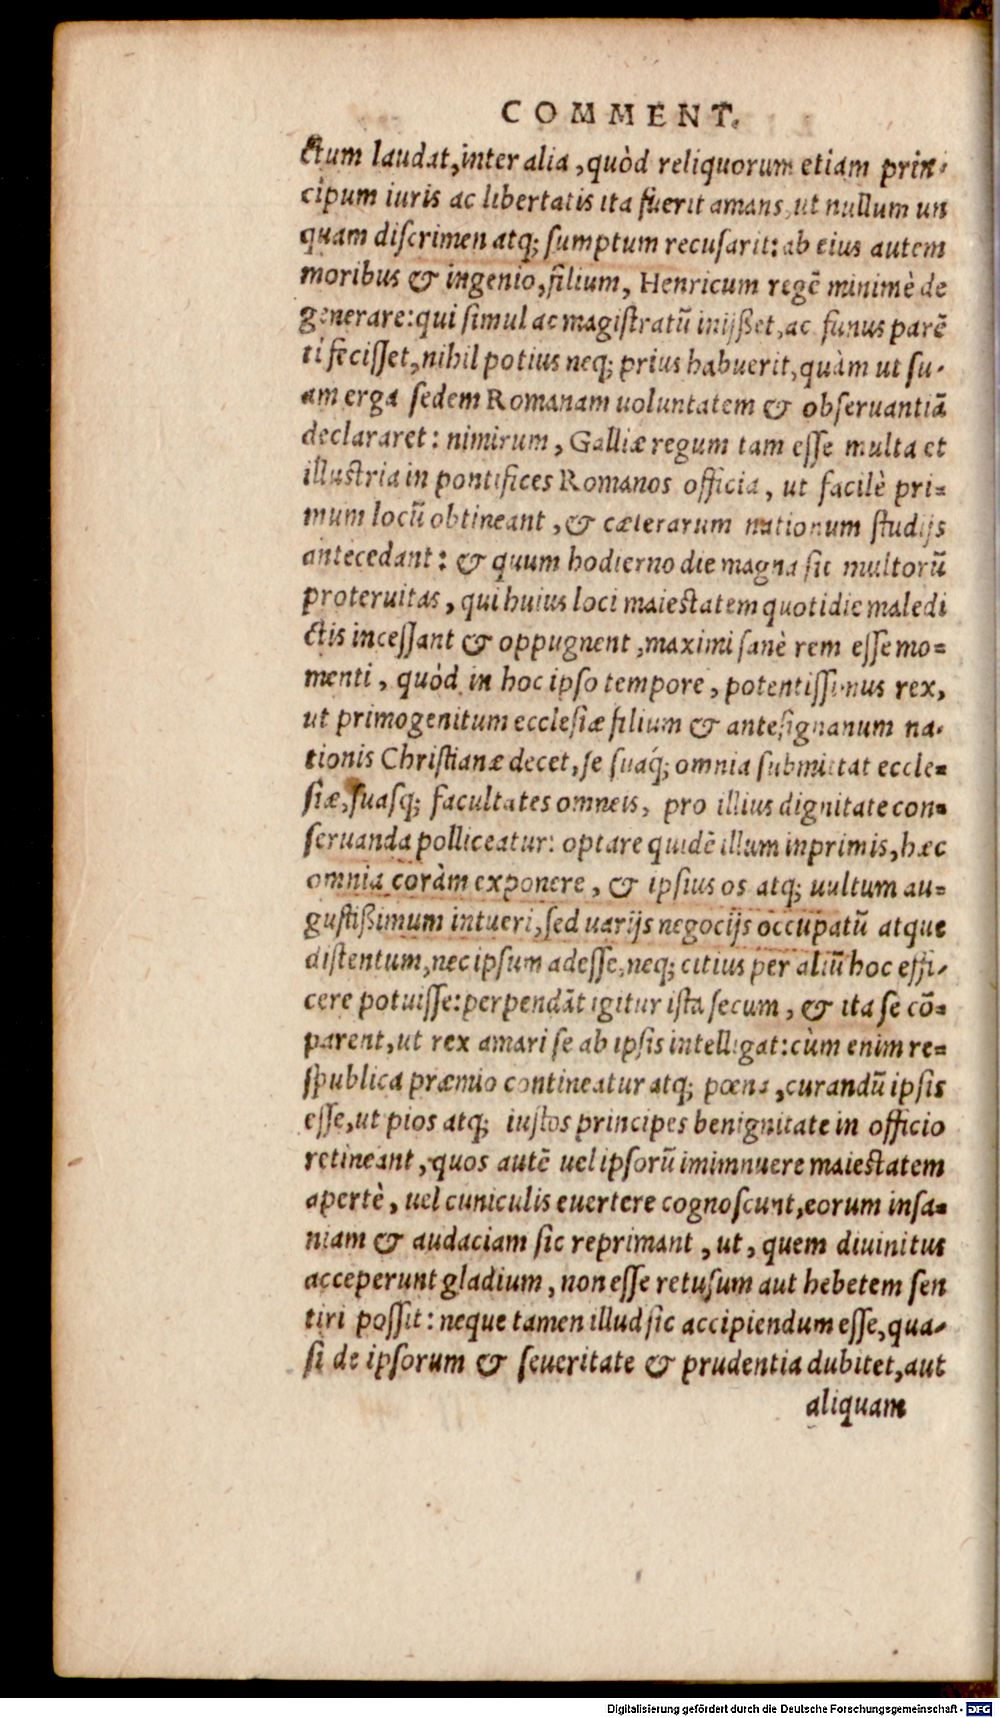 COMMENT.
ctum laudat, inter alia, quòd reliquorum etiam prin-
cipum iuris ac libertatis ita fuerit amans, ut nullum un
quam discrimen atq; sumptum recusarit: ab eius autem
moribus & ingenio, filium, Henricum regẽ minimè de
generare: qui simul ac magistratũ inijßet, ac funus parẽ
ti fecisset, nihil potius neq; prius habuerit, quàm ut su-
am erga sedem Romanam uoluntatem & obseruantiã
declararet: nimirum, Galliæ regum tam esse multa et
illustria in pontifices Romanos officia, ut facilè pri=
mum locũ obtineant, & cæterarum nationum studijs
antecedant: & quum hodierno die magna sit multorũ
proteruitas, qui huius loci maiestatem quotidie maledi
ctis incessant & oppugnent, maximi sanè rem esse mo=
menti, quòd in hoc ipso tempore, potentissimus rex,
ut primogenitum ecclesiæ filium & antesignanum na-
tionis Christianæ decet, se suaq́; omnia submittat eccle=
siæ, suasq; facultates omneis, pro illius dignitate con=
seruanda polliceatur: optare quidẽ illum inprimis, hæc
omnia coràm exponere, & ipsius os atq; uultum au=
gustißimum intueri, sed uarijs negocijs occupatũ atque
distentum, nec ipsum adesse, neq; citius per aliũ hoc effi-
cere potuisse: perpendãt igitur ista secum, & ita se cõ=
parent, ut rex amari se ab ipsis intelligat: cùm enim re=
spublica præmio contineatur atq; pœna, curandũ ipsis
esse, ut pios atq; iustos principes benignitate in officio
retineant, quos autẽ uel ipsorũ imimnuere maiestatem
apertè, uel cuniculis euertere cognoscunt, eorum insa=
niam & audaciam sic reprimant, ut, quem diuinitus
acceperunt gladium, non esse retusum aut hebetem sen
tiri possit: neque tamen illud sic accipiendum esse, qua-
si de ipsorum & seueritate & prudentia dubitet, aut
aliquam
Digitalisierung gefördert durch die Deutsche Forschungsgemeinschaft - DFG